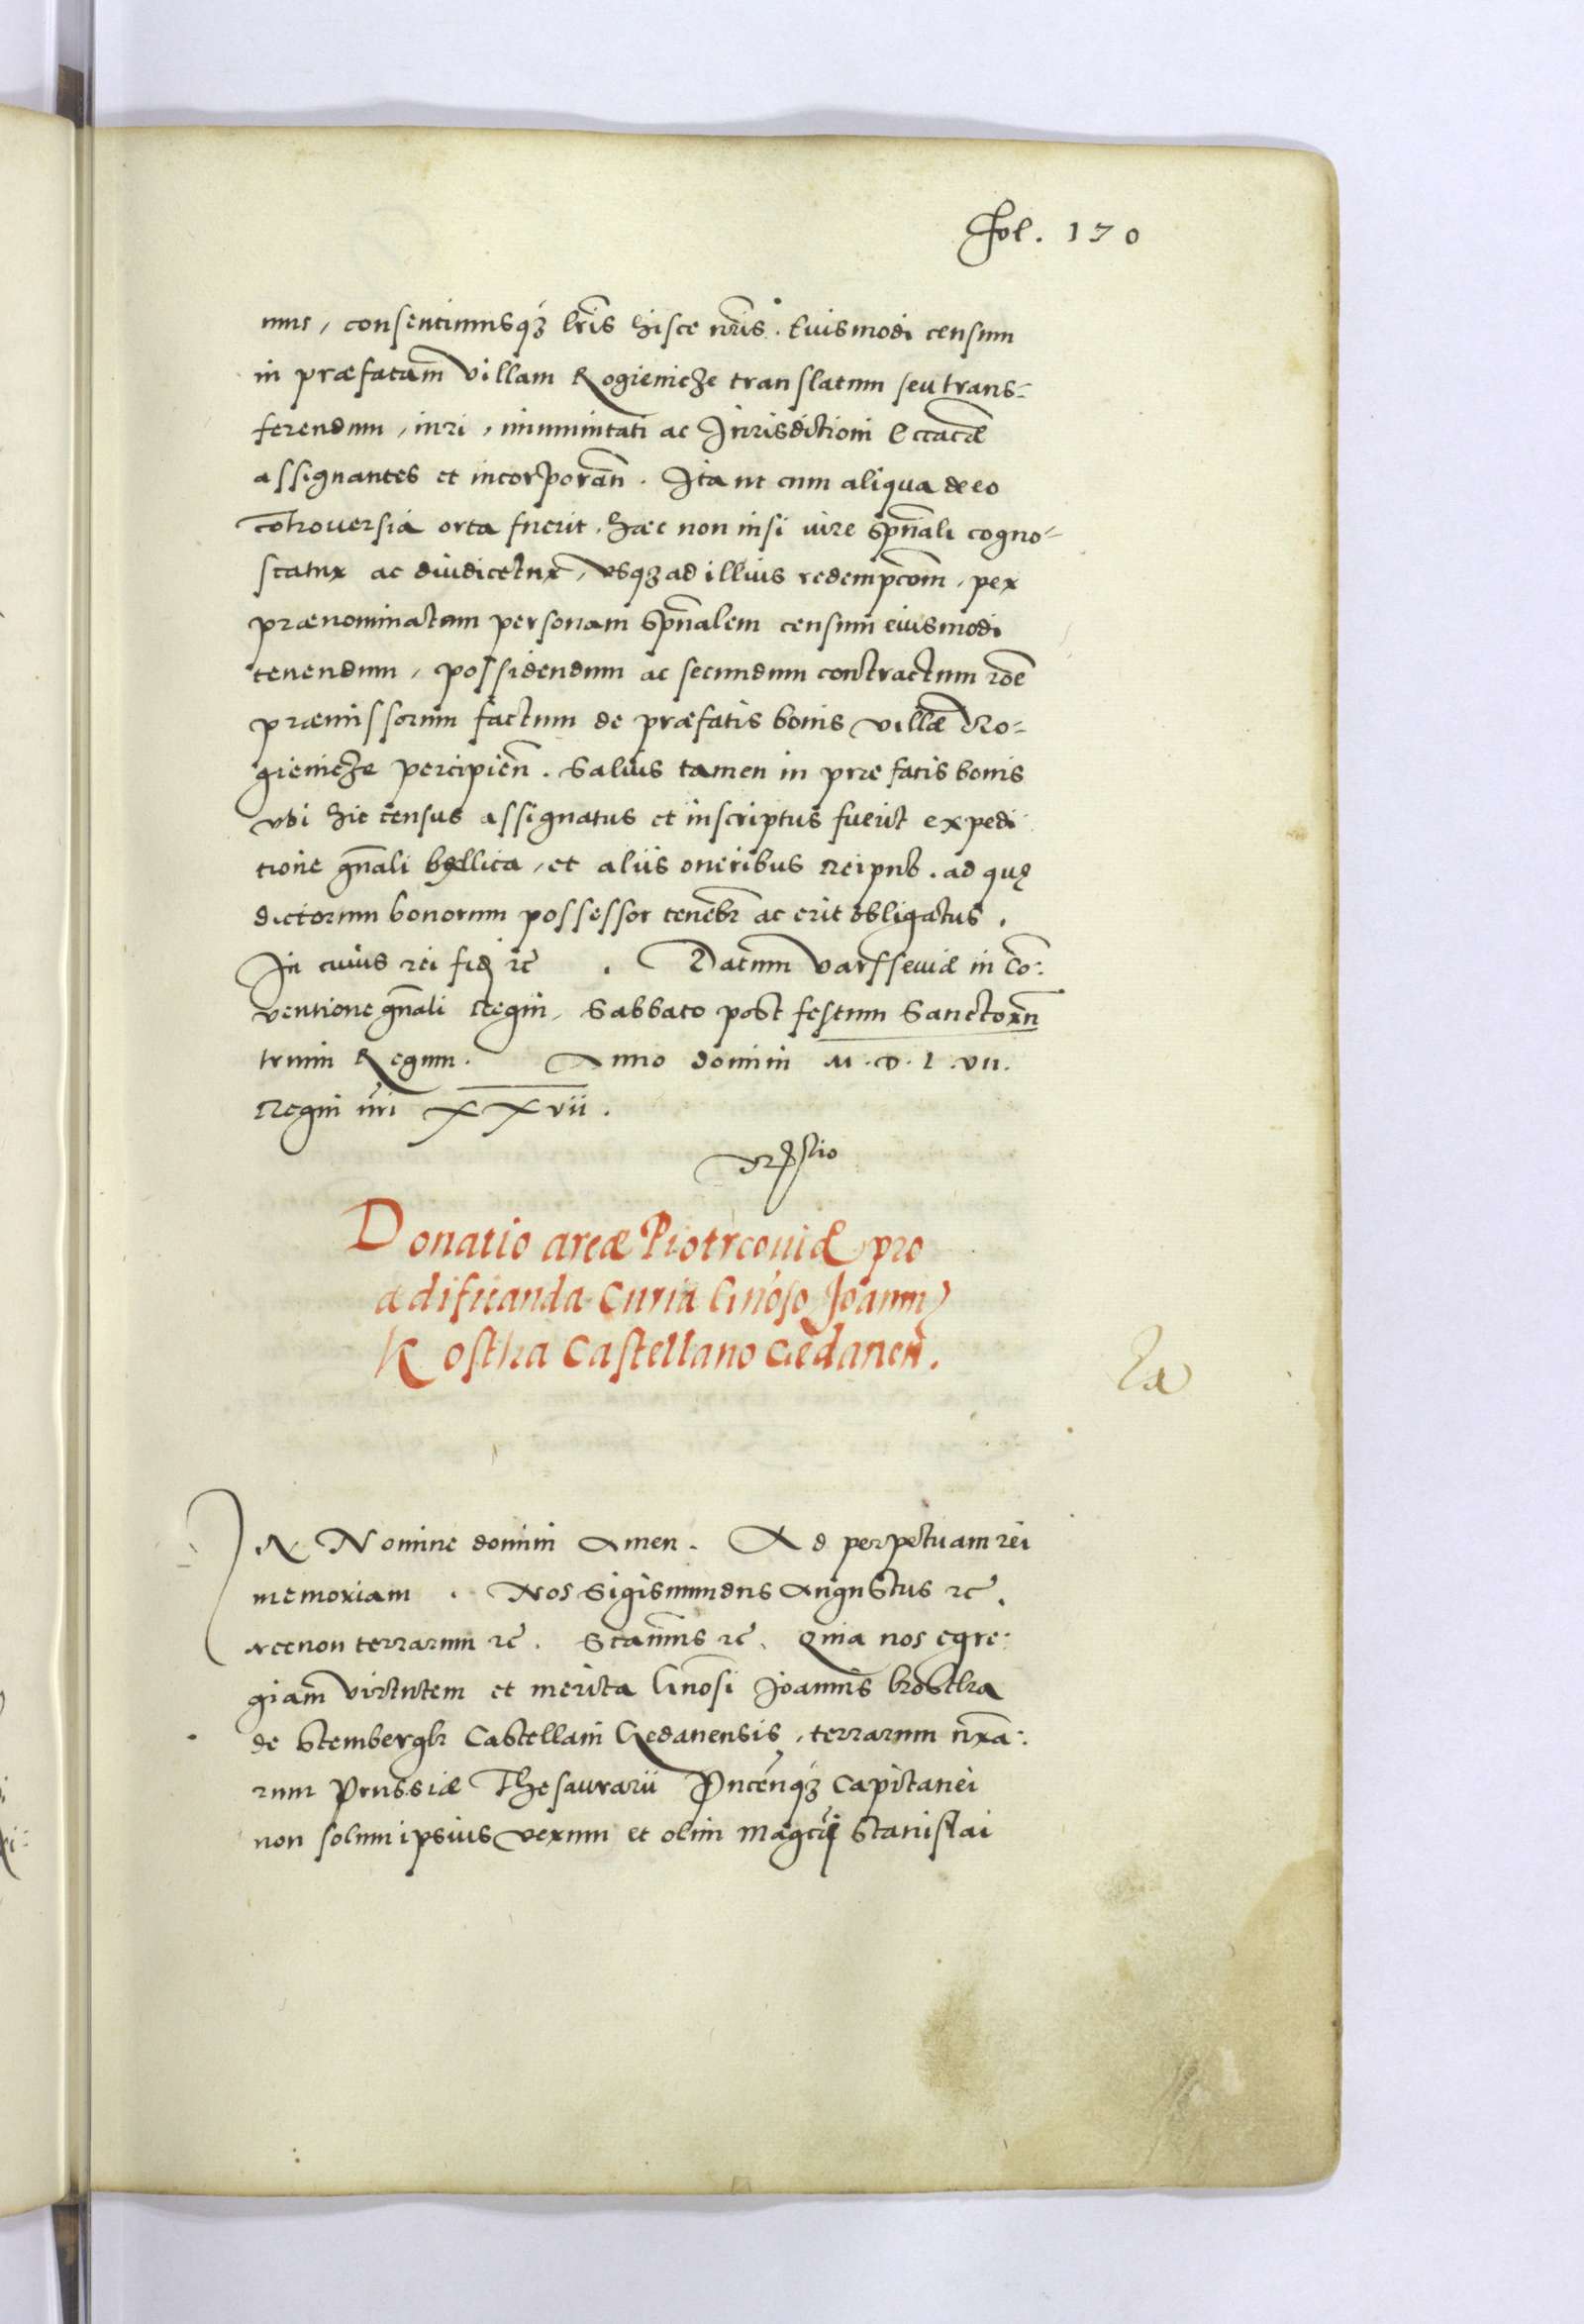 Fol. 170
mus, consentimusq₃ lr̃is hisce nr̃is. Euismodi censum
in præfatam̃ villam Rogienicze translatum seu trans=
ferendum, iuri, immunitati ac Jurisdictioni Ecc̃acæ
assignantes et incorporañ. Ita ut cum aliqua de eo
cõtrouersia orta fuerit, hæc non nisi iure sp̃nali cogno=
scatur ac diudicetur, vsq₃ ad illius redempc̃om, per
prænominatam personam sp̃nalem censum eiusmodi
tenendum, possidendum ac secundum contractum r̃oe
præmissorum factum de præfatis bonis villæ Ro=
gienicze percipieñ. Saluis tamen in præfatis bonis
vbi hic census assignatus et inscriptus fuerit expedi
tione gñali bellica, et aliis oneribus Reipub. ad quę
dictorum bonorum possessor tenebr̃ ac erit obligatus.
In cuius rei fidẽ ꝛc̃ . Datum Varsseuiæ in Cõ:
uentione gñali Regni, Sabbato post festum Sanctorũ
trium Regum. Anno domini M.D.L.VII.
Regni nr̃i XXvii.
Donatio areæ Piotrcouiæ pro
ædificanda Curia Gñoso Joanni
Kostka Castellano Gedaneñ.
IN Nomine domini Amen. Ad perpetuam rei
memoriam . Nos Sigismundus Augustus ꝛc̃.
necnon terrarum ꝛc̃. Significamus ꝛc̃. Quia nos egre:
giam̃ virtutem et merita Gñosi Joannis Kostka
de Stembergk Castellani Gedanensis, terrarum nr̃a:
rum Prussiæ Thesaurarii Pucenq₃ Capitanei
non solum ipsius verum et olim Magc̃i Stanislai